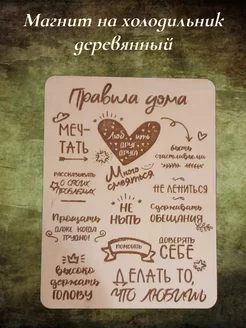 Магнит на холодильник
деревянный
Правила дома
МЕЧ-
ТАТЬ
ЛЮБИТЬ
ДРУГ
ДРУГА
БЫТЬ
СЧАСТЛИВЫМИ
РАССКАЗЫВАТЬ
О СВОИХ
ПРОБЛЕМАХ
Много
смеяться
НЕ ЛЕНИТЬСЯ
Прощать
ДАЖЕ, КОГДА
ТРУДНО!
НЕ
НЫТЬ
Сдерживать
ОБЕЩАНИЯ
ПОМОГАТЬ
ДОВЕРЯТЬ
СЕБЕ
ВЫСОКО
ДЕРЖАТЬ
ГОЛОВУ
ДЕЛАТЬ ТО,
ЧТО ЛЮБИШЬ